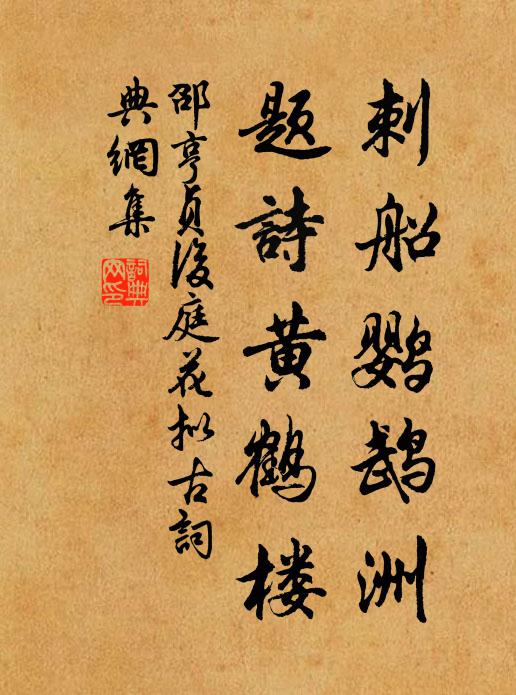 刺船鹦鹉洲
题詩黄鹤楼
邵亨貞後庭花拟古詞
典網集
詞典網印